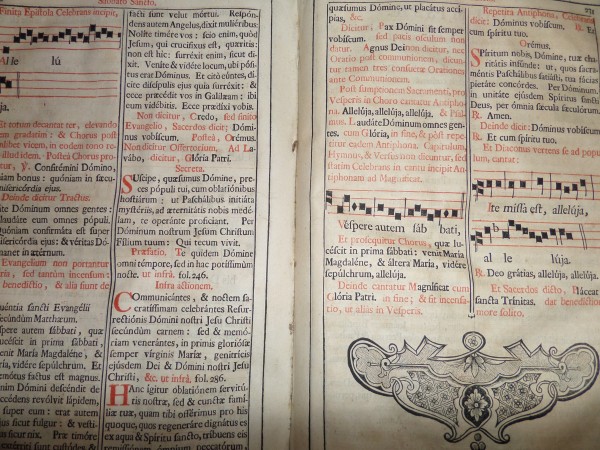 Sabbato Sancto.
Finita Epistola Celebrans incipit,
Al le lú
ja.
Et totum decantat ter, elevando
gradatim: & Chorus post
vicem, in eodem tono re-
illud idem. Posteà Chorus pro-
tur, ℣. Confitémini Dómino,
niam bonus: quóniam in sæcu-
misericórdia ejus.
Deinde dicitur Tractus.
te Dóminum omnes gentes:
laudáte eum omnes pópuli.
Quóniam confirmáta est super
misericórdia ejus: & véritas Dó-
manet in ætérnum.
Evangelium non portantur
ria, sed tantùm incensum:
benedictio, & alia sunt de
quéntia sancti Evangélii
secúndùm Matthæum.
spere autem sábbati, quæ
lucéscit in prima sábbati,
venit María Magdaléne, &
María, vidére sepúlchrum. Et
ce terræmótus factus est magnus.
enim Dómini descéndit de
accédens revólvit lápidem,
super eum: erat autem
ejus sicut fulgur: & vesti-
sicut nix. Præ timóre
extérriti sunt custódes &
facti sunt velut mórtui. Respón-
dens autem Angelus, dixit muliéribus:
Nolíte timére vos: scio enim, quòd
Jesum, qui crucifixus est, quæritis:
non est hîc: surréxit enim, sicut di-
xit. Venite & vidéte locum, ubi pósi-
tus erat Dóminus. Et citò eúntes, di-
cite discípulis ejus quia surréxit: &
ecce præcédit vos in Galilæam: ibi e-
um vidébitis. Ecce prædíxi vobis.
Non dicitur, Credo, sed finito
Evangelio, Sacerdos dicit; Dómi-
nus vobíscum. Posteà, Orémus.
Non dicitur Offertorium, Ad La-
vabo, dicitur, Glória Patri.
Secreta.
Súscipe, quæsumus Dómine, pre-
ces pópuli tui, cum oblatiónibus
hostiárum: ut Paschálibus initiáta
mystériis, ad æternitátis nobis medé-
lam, te operánte profíciant. Per
Dóminum nostrum Jesum Christum
Fílium tuum: Qui tecum vivit.
Præfatio, Te quidem Dómine
omni témpore, sed in hac potíssimùm
nocte. ut infrà. fol. 246.
Infra actionem.
Communicántes, & noctem sa-
cratíssimam celebrántes Resur-
rectiónis Dómini nostri Jesu Christi
secúndùm carnem: sed & memó-
riam venerántes, in primis gloriósæ
semper vírginis Maríæ, genitrícis
ejúsdem Dei & Dómini nostri Jesu
Christi, &c. ut infrà. fol. 286.
Hanc ígitur oblatiónem servitú-
tis nostræ, sed & cunctæ famí-
liæ tuæ, quam tibi offérimus pro his
quoque, quos regeneráre dignátus es
ex aqua & Spíritu sancto, tríbuens eis
remissiónem ómnium peccatórum,
quæsumus Dómine, ut placátus accí-
pias, &c.
Dicitur, Pax Dómini sit semper
vobíscum. sed pacis osculum non datur.
Agnus Dei non dicitur, nec
Oratio post communionem, dicun-
tur tamen tres consuetæ Orationes
ante Communionem.
Post sumptionem Sacramenti, pro
Vesperis in Choro cantatur Antipho-
na, Allelúja, allelúja, allelúja. & Psal-
mus. Laudáte Dóminum omnes gen-
tes. cum Glória, in fine, & póst repe-
titur eadem Antiphona. Capitulum,
Hymnus, & Versus non dicuntur, sed
statim Celebrans in cantu incipit An-
tiphonam ad Magnificat.
Véspere autem sáb bati,
Et prosequitur Chorus, quæ lu-
céscit in prima sábbati: venit María
Magdaléne, & áltera María, vidére
sepúlchrum, allelúja.
Deinde cantatur Magnificat cum
Glória Patri. in fine; & fit incensa-
tio, ut aliàs in Vesperis.
Repetita Antiphona, Celebrans
dicit: Dóminus vobíscum. ℟. Et
cum spíritu tuo.
Orémus.
Spíritum nobis, Dómine, tuæ cha-
ritátis infúnde: ut, quos sacra-
méntis Paschálibus satiásti, tua fácias
pietáte concórdes. Per Dóminum
in unitáte ejúsdem Spíritus sancti
Deus, per ómnia sǽcula sæculórum.
℟. Amen.
Deinde dicit: Dóminus vobíscum.
℟. Et cum spíritu tuo.
Et Diaconus vertens se ad popu-
lum, cantat:
Ite missa est, allelúja,
al le lúja.
℟. Deo grátias, allelúja, allelúja.
Et Sacerdos dicto, Pláceat
sancta Trínitas. dat benedictionem
more solito.